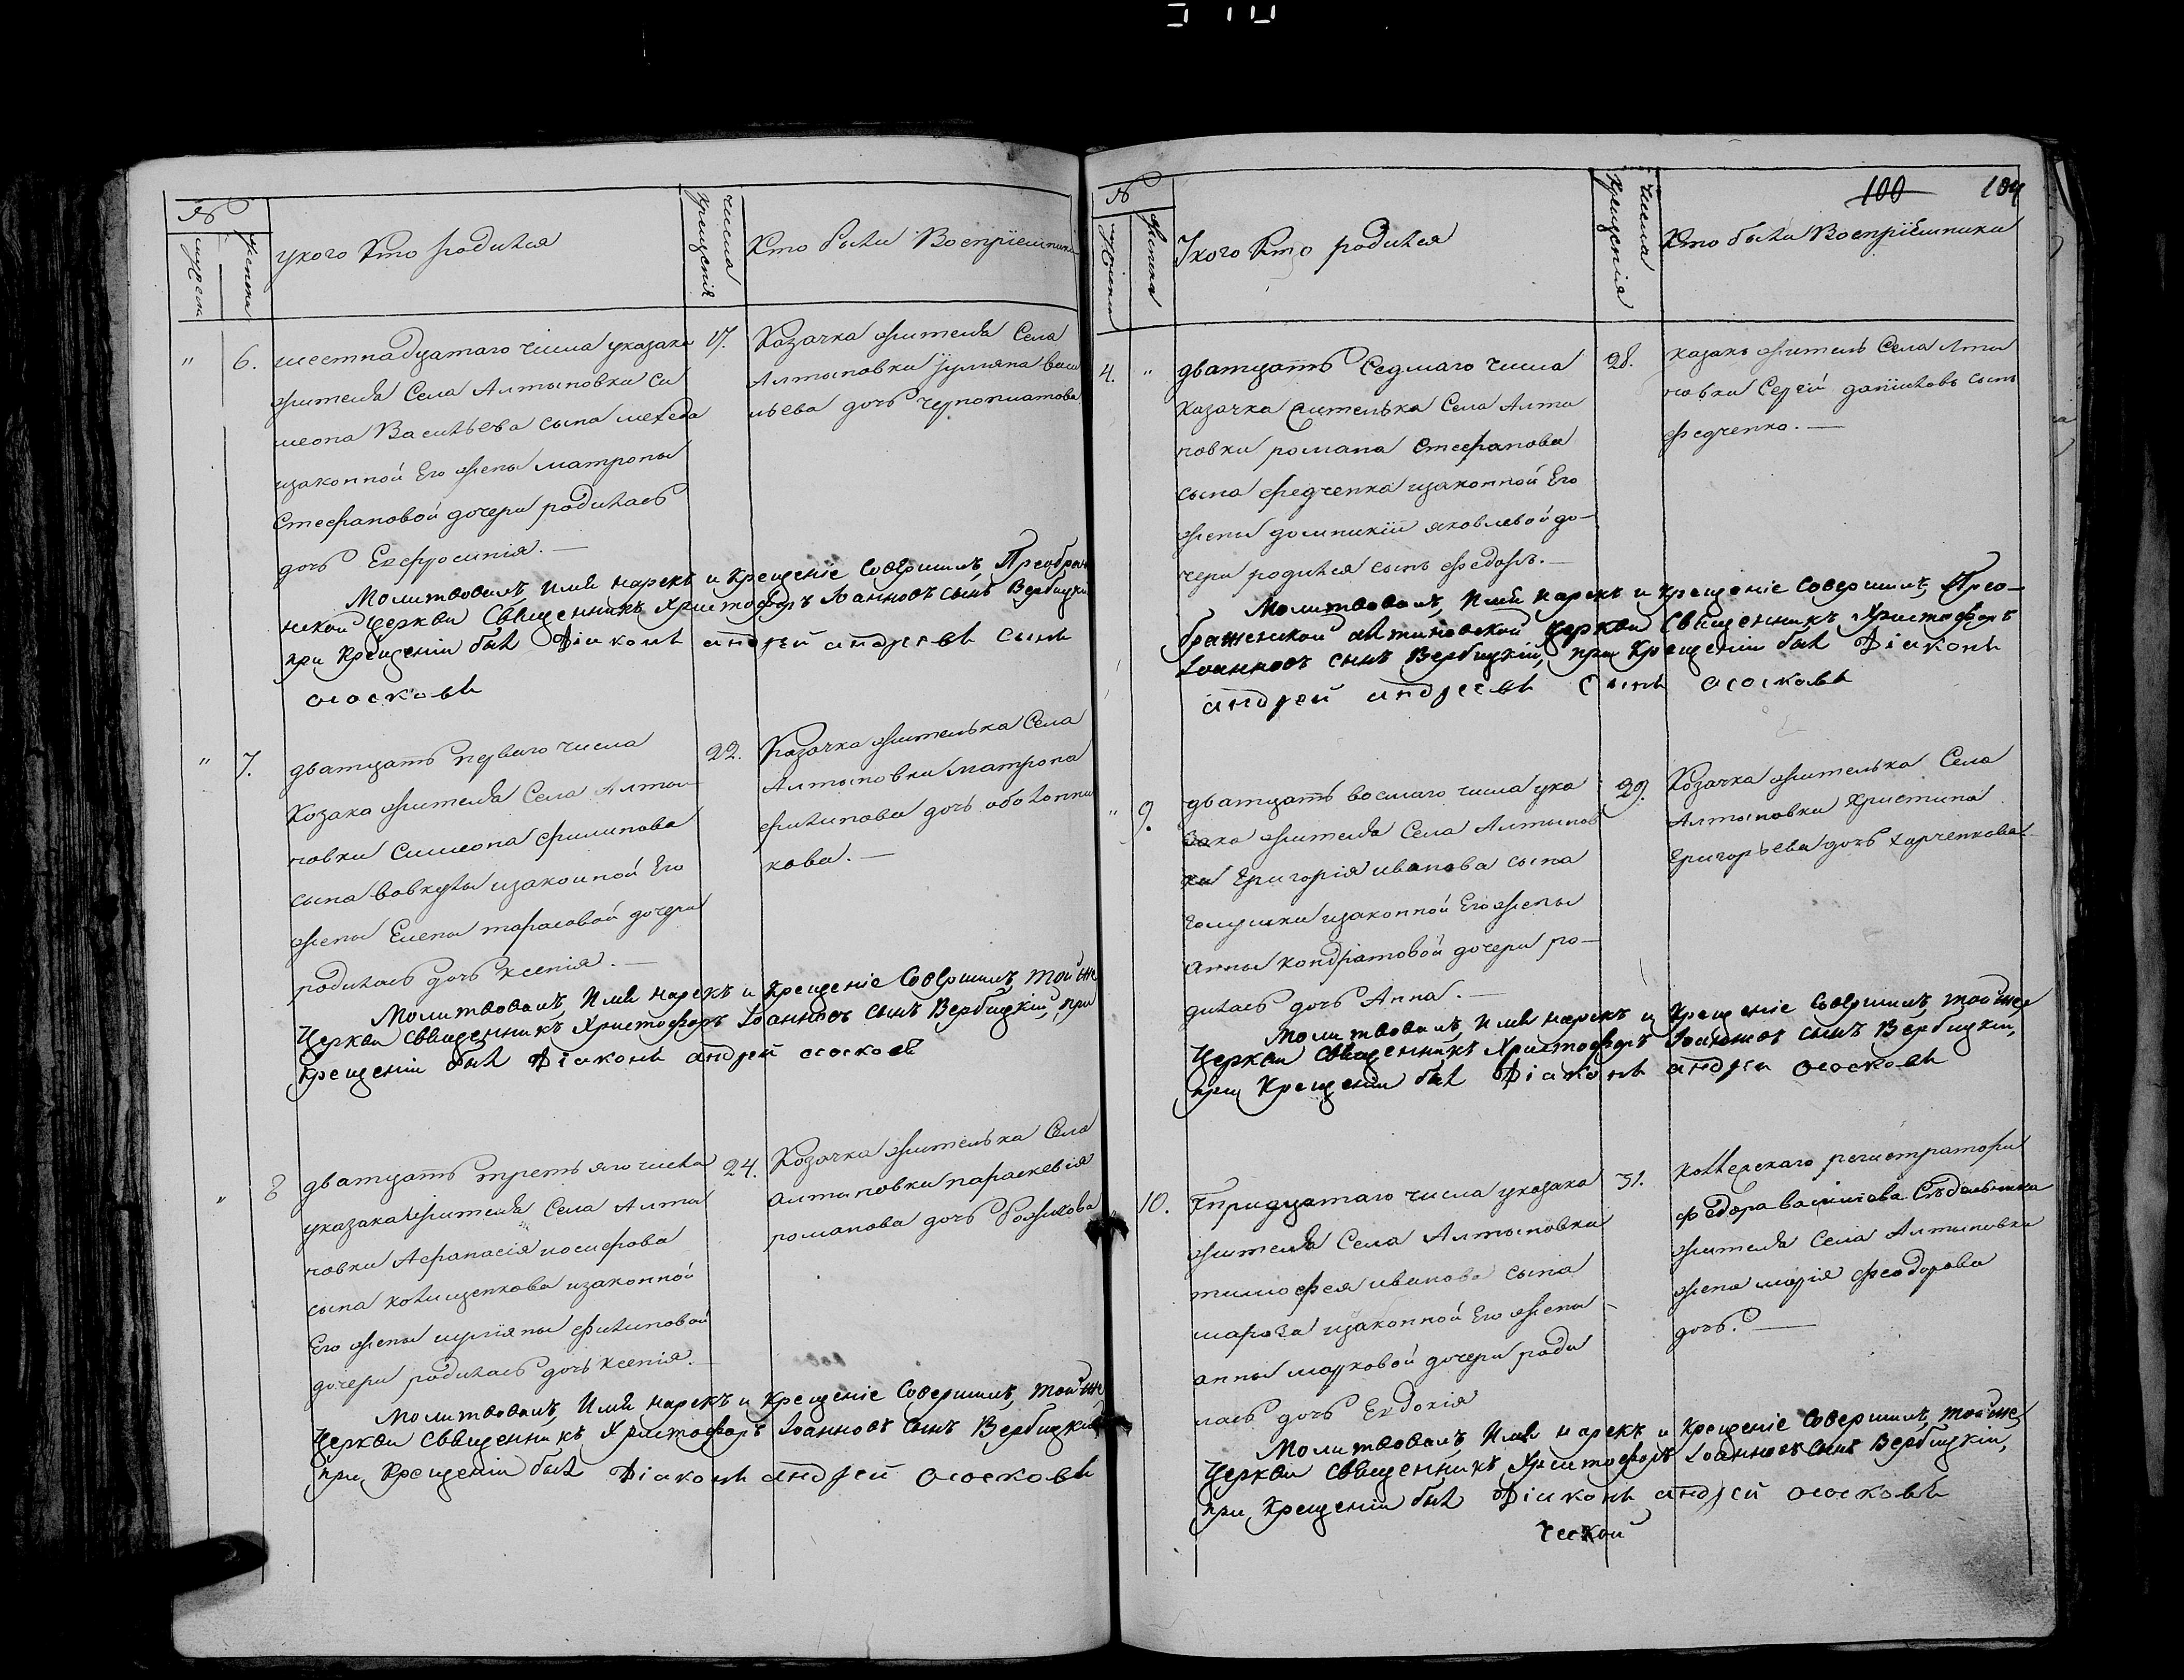 №
мужеск.
женска
укого Кто родился
числа
крещенія
Кто были Воспріемники
" 6. шестнадцатаго числа указака
жителя Села Алтыновки Си
меона Васильева сына
изаконной Его жены матроны
Стефановой дочери родилась
дочь Евфросинія. —
17. Козачка жителя Села
Алтыновки Іулияна васи
льева дочь
Молитвовалъ, Имя нарекъ и Крещеніе Совершилъ, Преображе
нской Церкви Священникъ Христофоръ Іоанновъ сынъ Вербицкій
при Крещеніи былъ Діаконъ андрей андреевъ сынъ
ососковъ
" 7. дватцать перваго числа
Козака жителя Села Алты
новки Симеона филипова
сына вовкулы изаконной Его
жены Елены тарасовой дочери
родилась дочь Ксенія. —
22. Козачка жителька Села
Алтыновки матрона
филипова дочь оболонни
кова. —
Молитвовалъ, Имя нарекъ и Крещеніе Совершилъ, той же
Церкви Священникъ Христофоръ Іоанновъ сынъ Вербицкій, при
Крещеніи былъ Діаконъ андрей ососковъ
" 8 дватцать третьяго числа
указака жителя Села Алты
новки Афанасія иосифова
сына изаконной
Его жены иулїяны филиповой
дочери родилась дочь Ксенія. —
24. Козачка жителька Села
алтыновки параскевія
романова дочь
Молитвовалъ, Имя нарекъ и Крещеніе Совершилъ, той же
Церкви Священникъ Христофоръ Іоанновъ Сынъ Вербицкій
при Крещеніи былъ Діаконъ андрей ососковъ
100 104
№
мужеска
женска
Укого Кто родился
Числа
Крещенія
Кто были Воспріемники
4. " дватцать Седмаго числа
Казачка жителька Села Алты
новки романа Стефанова
сына федченка изаконной Его
жены домникіи яковлевой до—
чери родился сынъ федоръ. —
28. казакъ житель Села Алты
новки Сергей даниловъ сынъ
федченко. —
Молитвовалъ, Имя нарекъ и крещеніе Совершилъ, Прео—
браженской алтиновской Церкви Священникъ Христофоръ
Іоанновъ сынъ Вербицкій, при Крещеніи былъ Діаконъ
андрей андреевъ сынъ ососковъ
" 9. дватцать восмаго числа ука
зака жителя Села Алтынов
ки Григорія иванова сына
изаконной Его жены
Анны кондратовой дочери ро—
дилась дочь Анна. —
29. Козачка жителька Села
Алтыновки Христина
Григорьева дочь харченкова
Молитвовалъ, Имя нарекъ и Крещеніе Совершилъ, той же
Церкви Священникъ Христофоръ Іоанновъ сынъ Вербицкій,
при Крещеніи былъ Діаконъ андрей ососковъ
10. тридцатаго числа указака
жителя Села Алтыновки
тимофея иванова сына
мароза изаконной Его жены —
анны марковой дочери роди
лась дочь Евдокія
31. Коллежскаго регистратора
федора василиева
жителя Села Алтыновки
жена марія феодорова
дочь. —
Молитвовалъ, Имя нарекъ и Крещеніе Совершилъ, той же
Церкви Священникъ Христофоръ Іоанновъ Сынъ Вербицкій,
при Крещеніи былъ Діаконъ андрей ососковъ
ческой